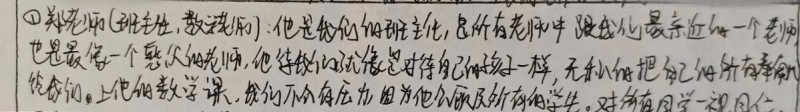 ①郑老师(班主任,数学老师):他是我们的班主任,是所有老师中跟我们最亲近的一个老师
也是最像一个慈父的老师,他待我们就像是对待自己的孩子一样,无私的把自己的所有奉献
给我们。上他的数学课,我们不会有压力因为他会顾及所有的学生。对所有同学一视同仁。